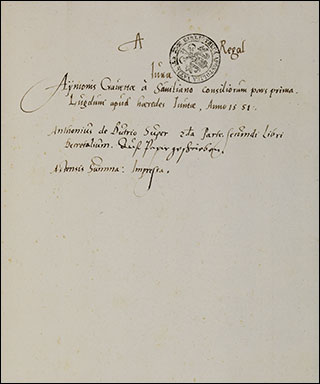 A Regal
Iura
Aymonis Crauettæ à Sauiliano Consiliorum pars prima.
Lugduni apud hæredes Iuntæ, Anno 1551.
Anthonius de Butrio Super 2da Parte secundi Libri
Decretalium. Auf Papyr geschrieben.
Astensis Summa: Impressa.